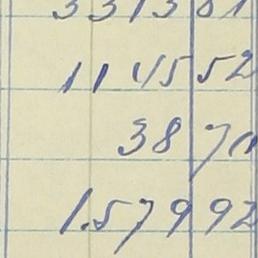 331381
114552
3870
1.57992